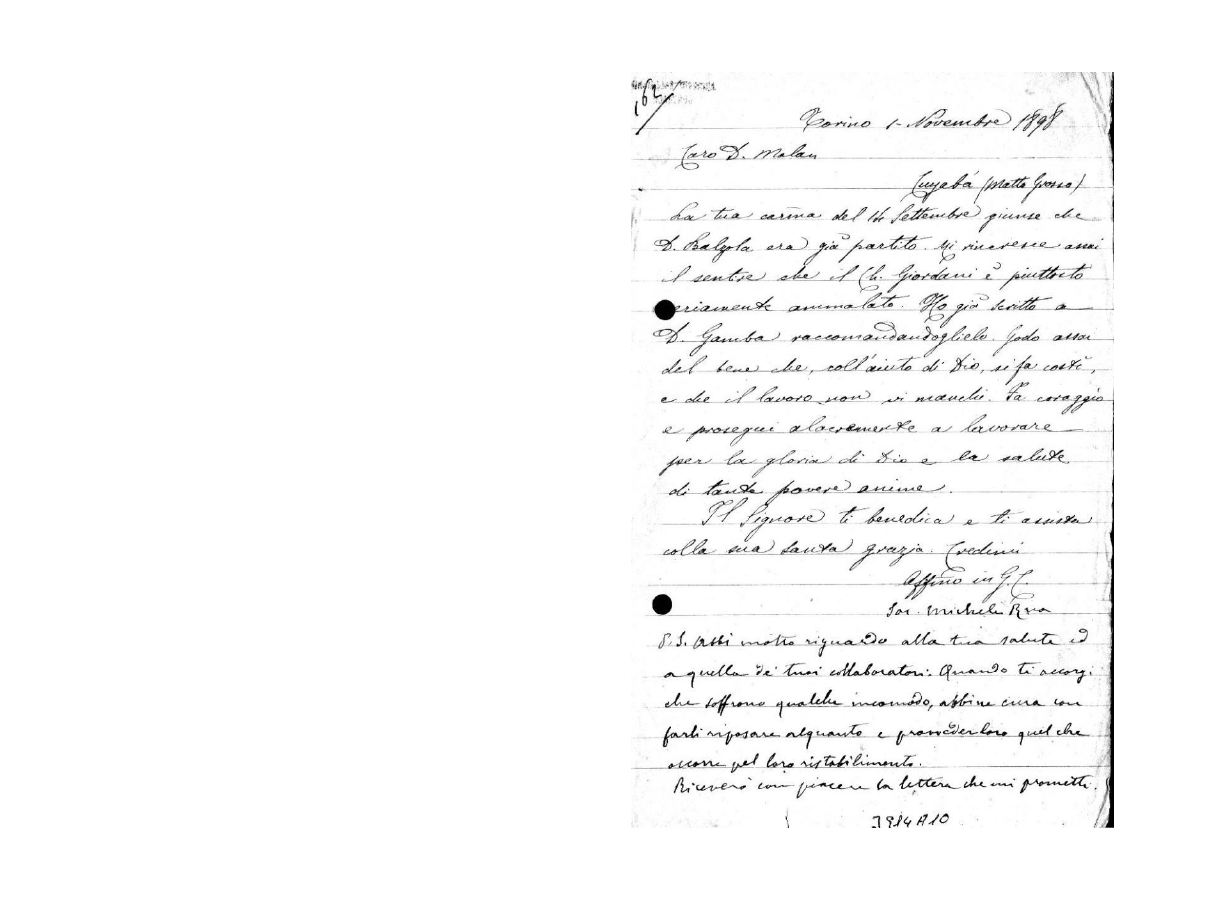 162
Torino 1- Novembre 1898
Caro D. Malan
Cuyabá (Matto Grosso)
La tua carma del 14 Settembre giunse che
D. Balzola era già partito. Mi rincresce assai
il sentire che il Ch. Giordani è piuttosto
seriamente ammalato. Ho già scritto a
D. Gamba raccomandandoglielo. Godo assai
del bene che, coll'aiuto di Dio, si fa costì,
e che il lavoro non vi manchi. Fa coraggio
e prosegui alacremente a lavorare
per la gloria di Dio e la salute
di tante povere anime.
Il Signore ti benedica e ti assista
colla sua santa grazia. Credimi
Affmo in G. C.
Sac. Michele Rua
P. S. Abbi molto riguardo alla tua salute ed
a quella de' tuoi collaboratori. Quando ti accorgi
che soffrono qualche incomodo, abbine cura con
farli riposare alquanto e provveder loro quel che
occorre pel loro ristabilimento.
Riceverò con piacere la lettera che mi prometti.
3914A10